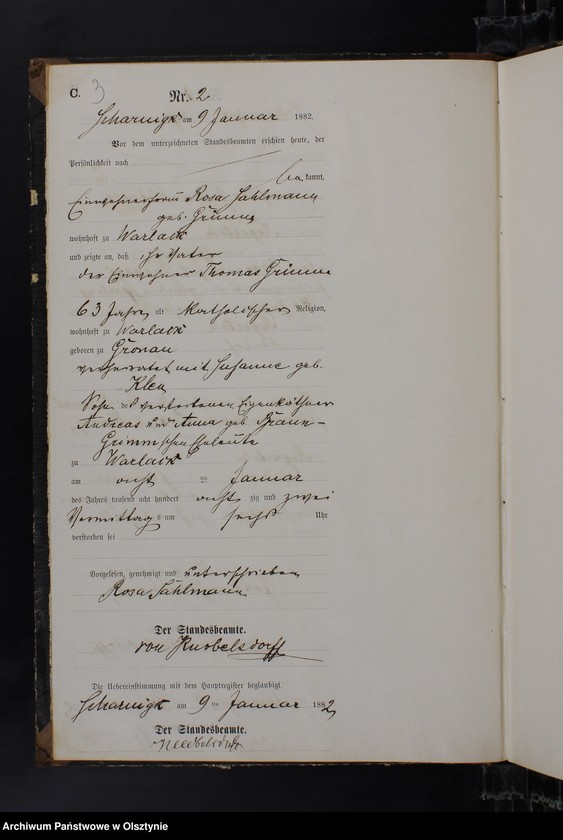 C. 3
Nr. 2
Scharnigk am 9 Januar 1882.
Vor dem unterzeichneten Standesbeamten erschien heute, der
Persönlichkeit nach
be kannt,
Einwohnerfrau Rosa Sahlmann
geb. Grimm
wohnhaft zu Warlack
und zeigte an, daß ihr Vater
der Einwohner Thomas Grimm
63 Jahre alt katholischer Religion,
wohnhaft zu Warlack
geboren zu Gronau
verheiratet mit Susanne geb.
Klein
Sohn des verstorbenen Eigenkäthner
Andreas und Anna geb. Braun-
Grimmschen Eheleute
zu Warlack
am acht ten Januar
des Jahres tausend acht hundert acht zig und zwei
Vormittag s um sechs Uhr
verstorben sei
Vorgelesen, genehmigt und unterschrieben
Rosa Sahlmann
Der Standesbeamte.
von Knobelsdorff
Die Uebereinstimmung mit dem Hauptregister beglaubigt.
Scharnigk am 9 ten Januar 1882
Der Standesbeamte.
Archiwum Państwowe w Olsztynie